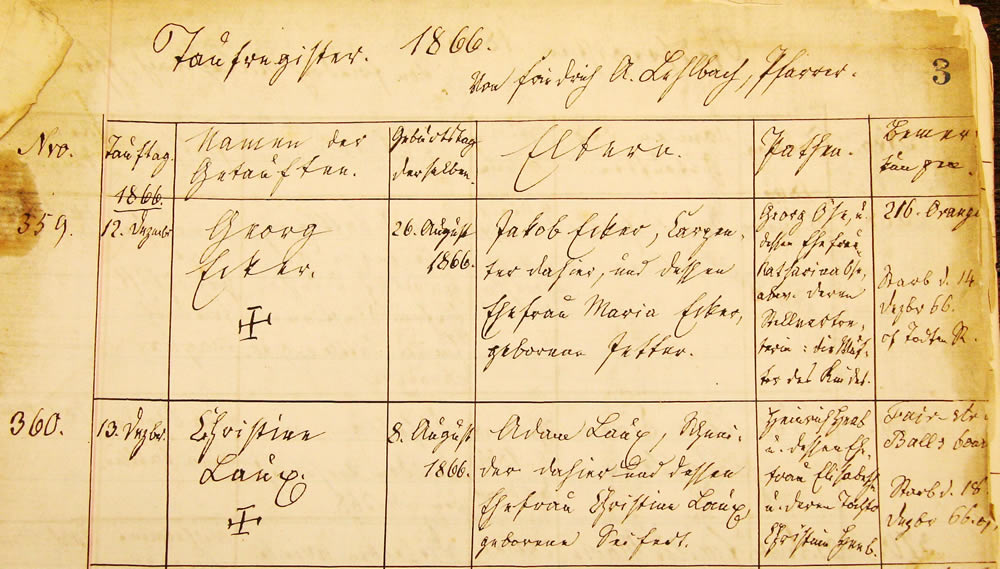 Taufregister. 1866.
Von Friedrich A. Lehlbach, Pfarrer.
3
Nro.
Tauftag.
1866.
Namen der
Getauften.
Geburtstag
derselben.
Eltern.
Pathen.
Bemer-
kungen.
359.
12. Dezember
Georg
Ecker.
26. August
1866.
Jakob Ecker, Carpen-
ter dahier, und dessen
Ehefrau Maria Ecker,
geborene Jetter.
Georg Ose, u.
dessen Ehefrau
Katharina Ose,
deren
Stellvertre-
terin: die Mut-
ter des Kindes.
216. Orange
Starb d. 14.
Dezbr 66.
cf Todten R.
360.
13. Dezbr.
Christine
Laux.
8. August
1866.
Adam Laux, Schnei-
der dahier und dessen
Ehefrau Christine Laux,
geborene Seifert.
Heinrich
u. dessen Ehe-
frau Elisabeth
u. deren Tochter
Christine
Fair str.
Starb d. 18
Dezbr 66.